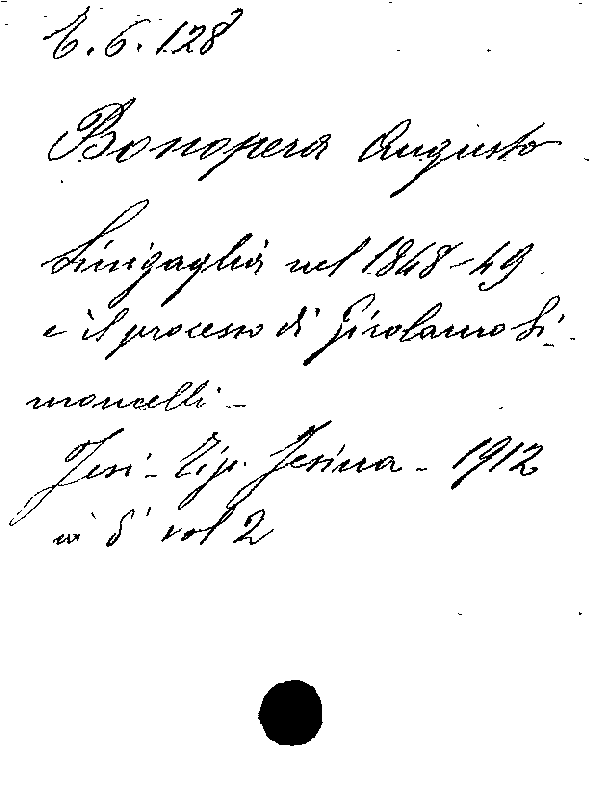 E. 6. 128
Bonopera Augusto
Sinigaglia nel 1848-49
e il processo di Girolamo Si-
moncelli -
Jesi - Tip. Jesina - 1912
in 8° vol 2